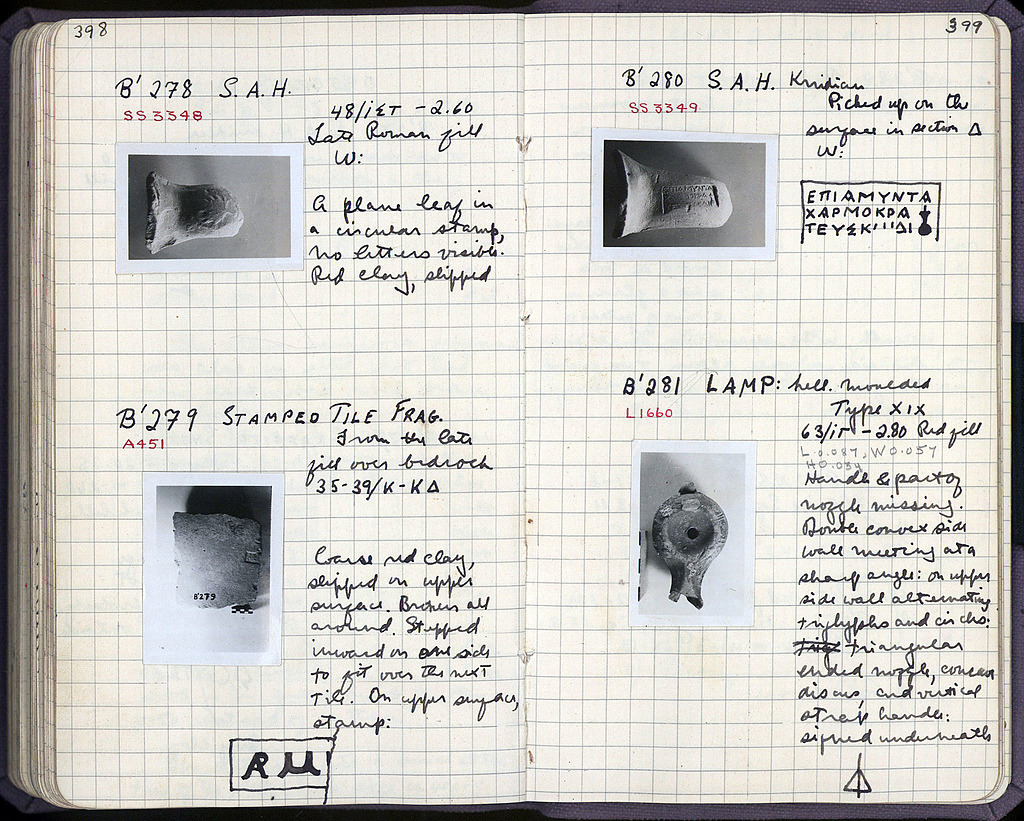 398
B' 278 S. A. H.
SS 3348
48/ΙΣΤ - 2.60
Late Roman fill
W:
A plane leaf in
a circular stamp,
no letters visible.
Red clay, slipped
B' 279 STAMPED TILE FRAG.
A451
From the late
fill over bedrock
35-39/K-KΔ
B'279
Coarse red clay,
slipped on upper
surface. Broken all
around. Stepped
inward on one side
to fit over the next
Tile. On upper surface,
stamp:
399
B' 280 S. A. H. Knidian
SS 3349
Picked up on the
surface in section Δ
W:
ΕΠΙΑΜΥΝΤΑ
ΧΑΡΜΟΚΡΑ
ΤΕΥΣΚ'''ΔΙ
B' 281 LAMP: hell. moulded
L1660
Type XIX
63/ΙΓ - 2.80 Red fill
L. 0.087, W 0.057
H 0.034
Handle & part of
nozzle missing.
Double convex side
wall meeting at a
sharp angle: on upper
side wall alternating
triglyphs and circles:
triangular
ended nozzle, concave
discus and vertical
strap handle:
signed underneath